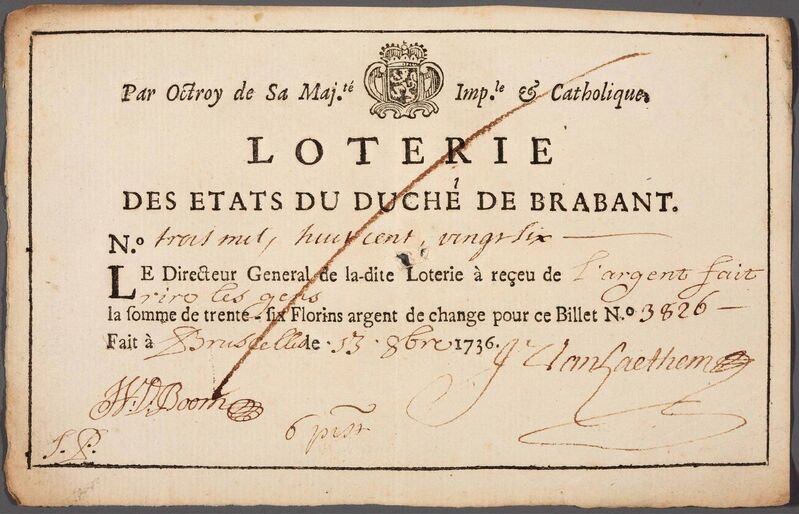 Par Octroy de Sa Maj.té Imp.le & Catholique.
LOTERIE
DES ETATS DU DUCHÉ DE BRABANT.
N.o trois mil, huit cent, vingt six
LE Directeur General de la-dite Loterie à reçeu de l'argent fait
riro les gens
la somme de trente-six Florins argent de change pour ce Billet N.o 3826
Fait à Bruxelles de 13 8bre 1736.
J Van Laethem
W. D. Boom
6 pist
J. P.